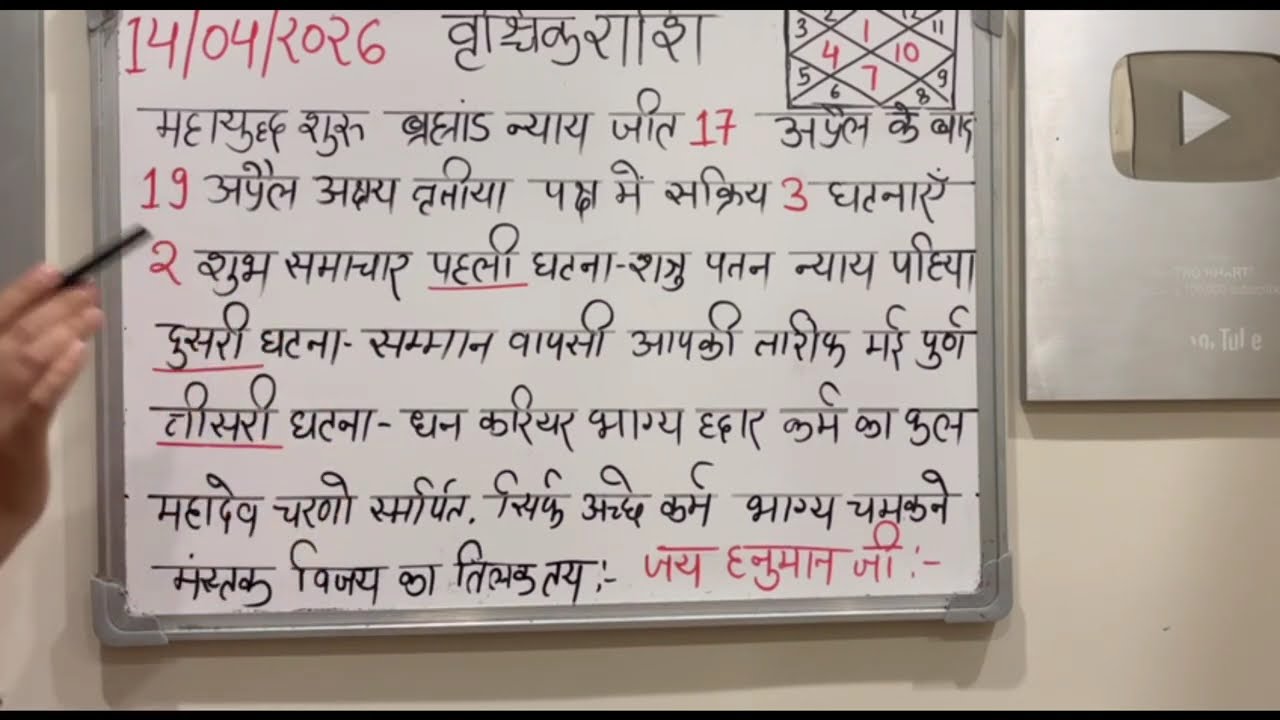 14/04/२०२६ वृश्चिक राशि
2 12
3 1 11
4 10
5 7 9
6 8
महायुध्द शुरू ब्रह्मांड न्याय जीत 17 अप्रैल के बाद
19 अप्रैल अक्षय तृतीया पक्ष में सक्रिय 3 घटनाएँ
२ शुभ समाचार पहली घटना - शत्रु पतन न्याय पहिया
दुसरी घटना - सम्मान वापसी आपकी तारीफ मई पुर्ण
तीसरी घटना - धन करियर भाग्य हद्दार कर्म का कुल
महादेव चरणो स्मर्पित. सिर्फ अच्छे कर्म भाग्य चमकने
मस्तक विजय का तिलक तय :- जय हनुमान जी :-